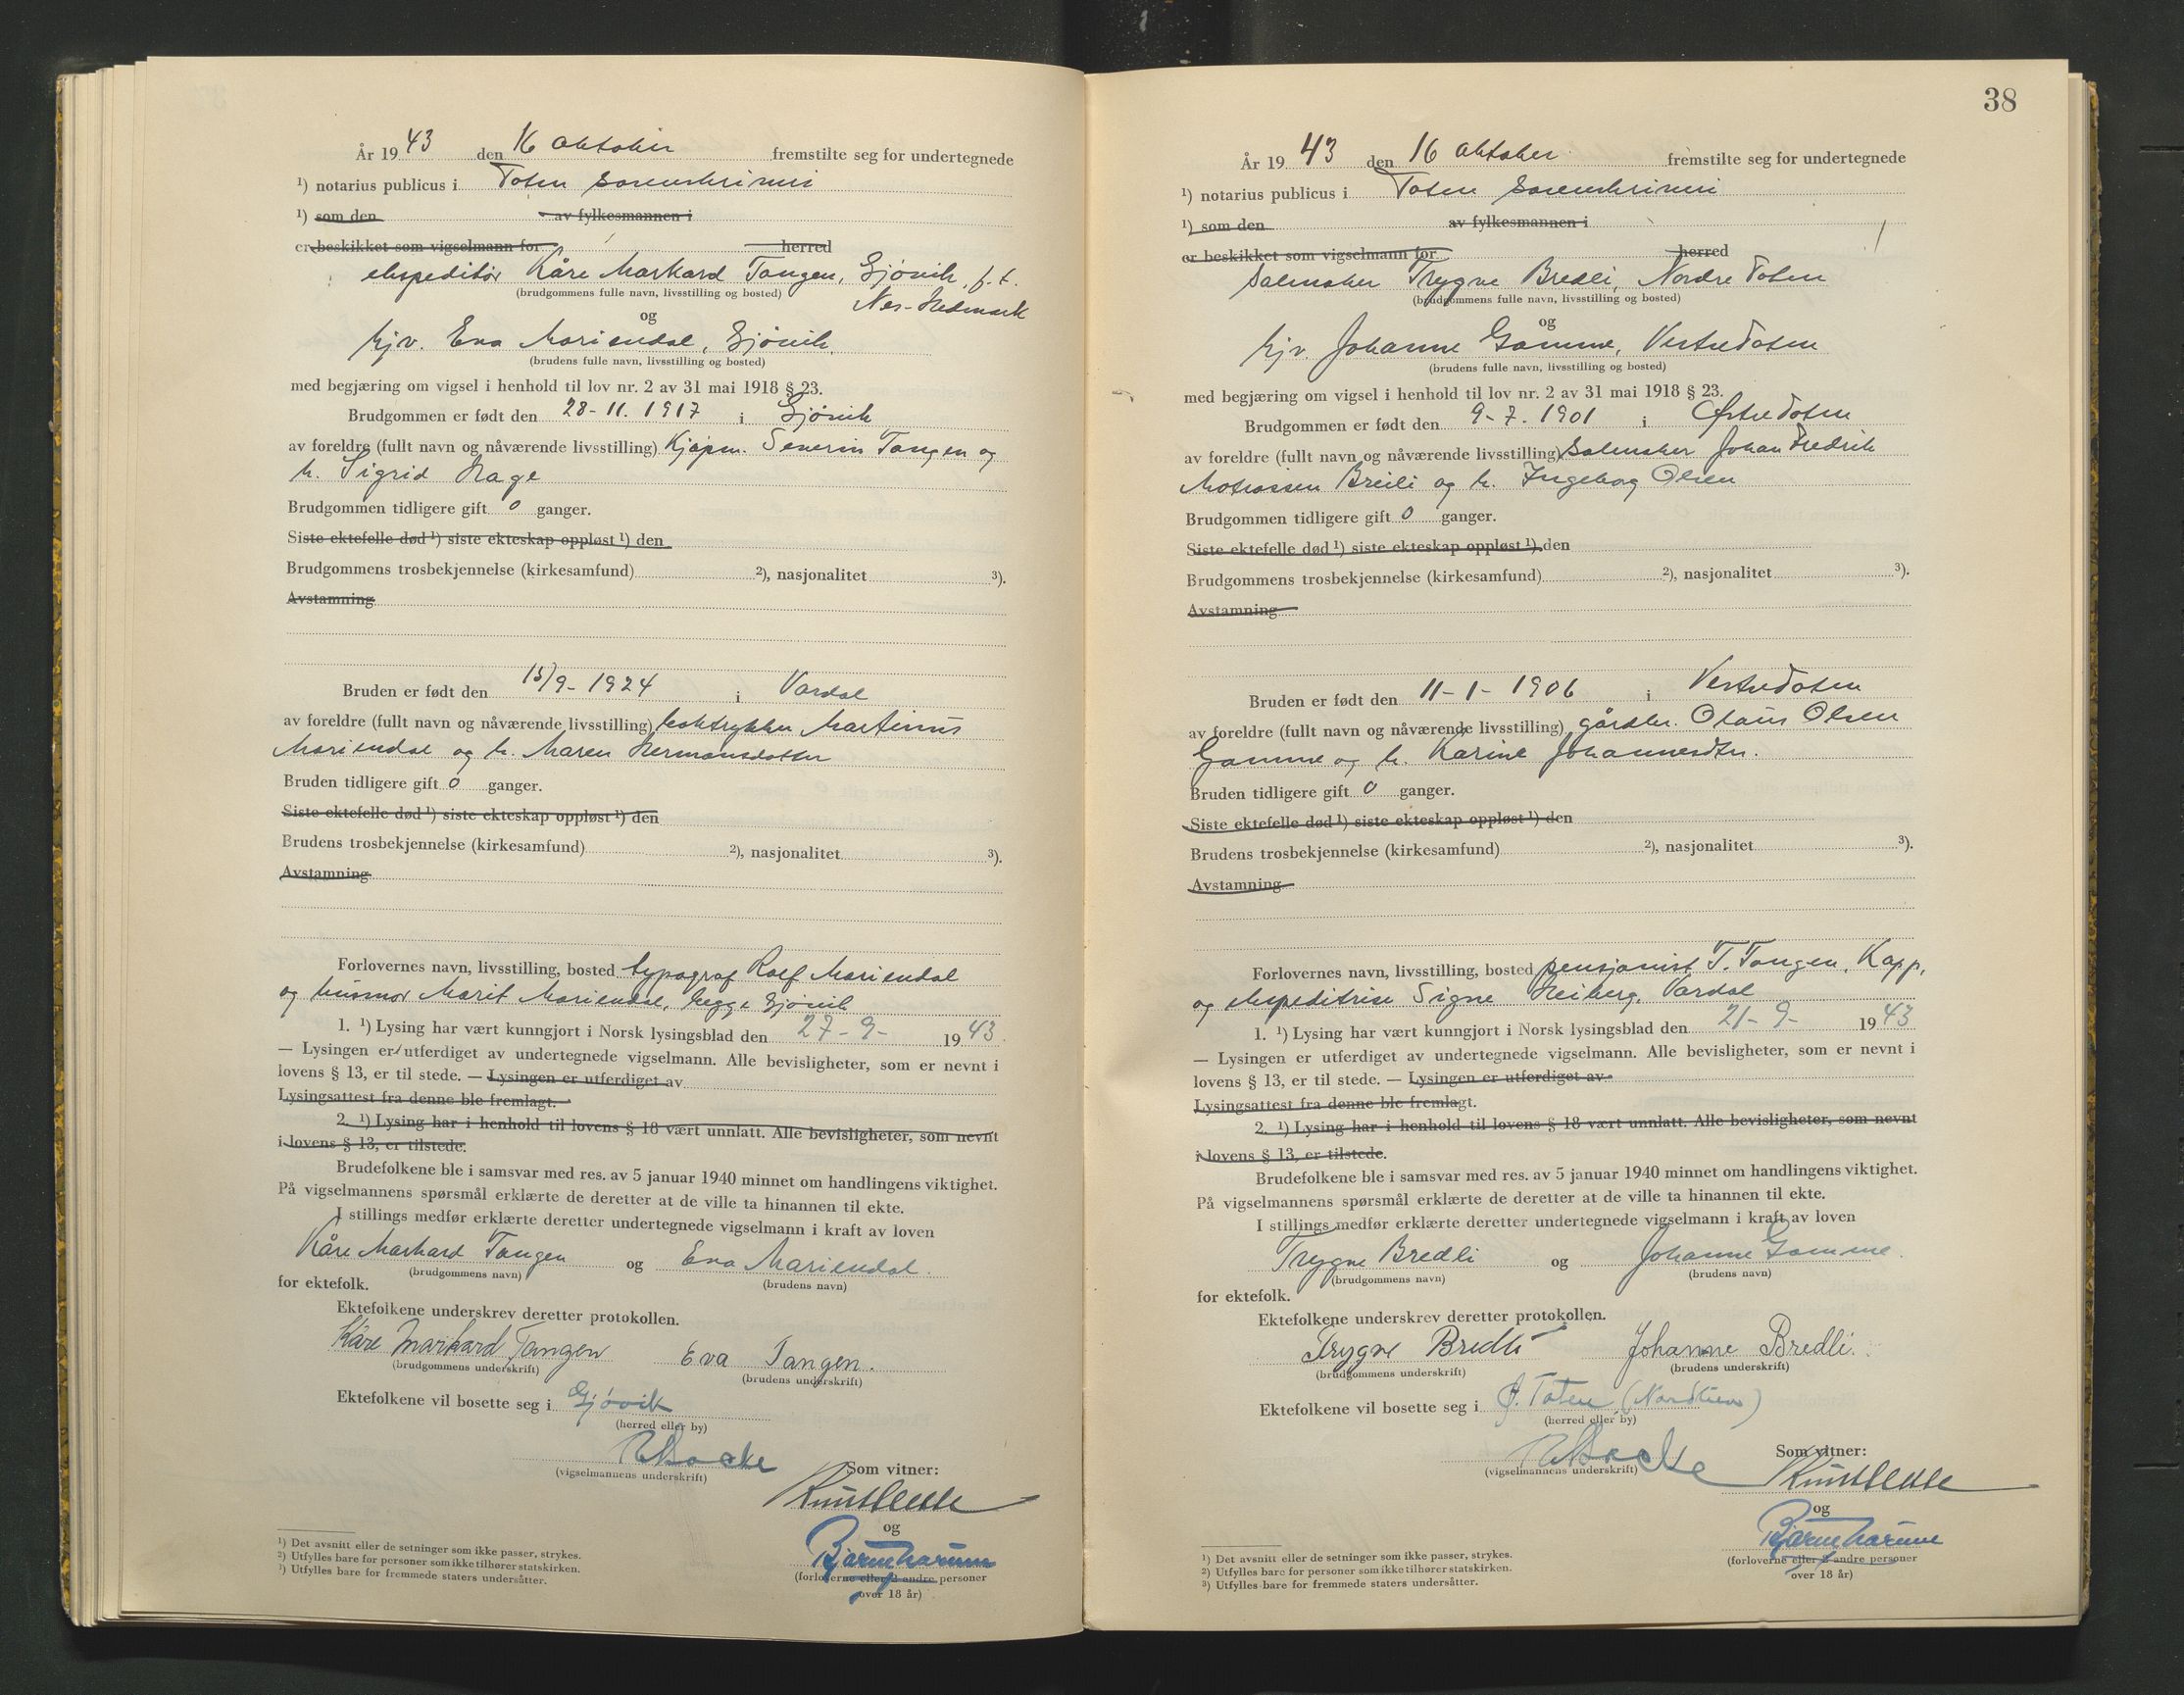 År 19 43 den 16 oktober fremstilte seg for undertegnede
¹) notarius publicus i Toten sorenskriveri
¹) som den av fylkesmannen i
er beskikket som vigselmann for herred
ekspeditør Kåre Markard Tangen, Gjövik, f. t.
(brudgommens fulle navn, livsstilling og bosted) Nes-Hedmark
og
frv. Eva Mariendal, Gjövik.
(brudens fulle navn, livsstilling og bosted)
med begjæring om vigsel i henhold til lov nr. 2 av 31 mai 1918 § 23.
Brudgommen er født den 28-11. 1917 i Gjövik
av foreldre (fullt navn og nåværende livsstilling) Kjøpm. Severin Tangen og
h. Sigrid Hage
Brudgommen tidligere gift 0 ganger.
Siste ektefelle død ¹) siste ekteskap oppløst ¹) den
Brudgommens trosbekjennelse (kirkesamfund) ²), nasjonalitet ³).
Avstamning
Bruden er født den 15/9- 1924 i Vardal
av foreldre (fullt navn og nåværende livsstilling) boktrykker Martinus
Mariendal og h. Maren Hermansdotter
Bruden tidligere gift 0 ganger.
Siste ektefelle død ¹) siste ekteskap oppløst ¹) den
Brudens trosbekjennelse (kirkesamfund) ²), nasjonalitet ³).
Avstamning
Forlovernes navn, livsstilling, bosted typograf Rolf Mariendal
og husmor Marit Mariendal, begge Gjövik
1. ¹) Lysing har vært kunngjort i Norsk lysingsblad den 27-9- 19 43.
— Lysingen er utferdiget av undertegnede vigselmann. Alle bevisligheter, som er nevnt i
lovens § 13, er til stede. — Lysingen er utferdiget av
Lysingsattest fra denne ble fremlagt.
2. ¹) Lysing har i henhold til lovens § 18 vært unnlatt. Alle bevisligheter, som nevnt
i lovens § 13, er tilstede.
Brudefolkene ble i samsvar med res. av 5 januar 1940 minnet om handlingens viktighet.
På vigselmannens spørsmål erklærte de deretter at de ville ta hinannen til ekte.
I stillings medfør erklærte deretter undertegnede vigselmann i kraft av loven
Kåre Markard Tangen og Eva Mariendal.
(brudgommens navn) (brudens navn)
for ektefolk.
Ektefolkene underskrev deretter protokollen.
Kåre Markard Tangen Eva Tangen.
(brudgommens underskrift) (brudens underskrift)
Ektefolkene vil bosette seg i Gjövik
(herred eller by)
(vigselmannens underskrift) Som vitner:
og
(forloverne eller 2 andre personer
over 18 år)
¹) Det avsnitt eller de setninger som ikke passer, strykes.
²) Utfylles bare for personer som ikke tilhører statskirken.
³) Utfylles bare for fremmede staters undersåtter.
38
År 19 43 den 16 oktober fremstilte seg for undertegnede
¹) notarius publicus i Toten sorenskriveri
¹) som den av fylkesmannen i
er beskikket som vigselmann for herred
Salmaker Trygve Bredli, Nordre Toten
(brudgommens fulle navn, livsstilling og bosted)
og
frv. Johanne Gamme, Vestre Toten
(brudens fulle navn, livsstilling og bosted)
med begjæring om vigsel i henhold til lov nr. 2 av 31 mai 1918 § 23.
Brudgommen er født den 9-7. 1901 i Østre Toten
av foreldre (fullt navn og nåværende livsstilling) Salmaker Johan Fredrik
Breili og h. Ingeborg Olsen
Brudgommen tidligere gift 0 ganger.
Siste ektefelle død ¹) siste ekteskap oppløst ¹) den
Brudgommens trosbekjennelse (kirkesamfund) ²), nasjonalitet ³).
Avstamning
Bruden er født den 11-1- 1906 i Vestre Toten
av foreldre (fullt navn og nåværende livsstilling) gårdbr. Olaus Olsen
Gamme og h. Karine Johannesdtr.
Bruden tidligere gift 0 ganger.
Siste ektefelle død ¹) siste ekteskap oppløst ¹) den
Brudens trosbekjennelse (kirkesamfund) ²), nasjonalitet ³).
Avstamning
Forlovernes navn, livsstilling, bosted pensjonist T. Tangen, Kapp,
og ekspeditrise Signe Heiberg, Vardal
1. ¹) Lysing har vært kunngjort i Norsk lysingsblad den 21-9- 19 43
— Lysingen er utferdiget av undertegnede vigselmann. Alle bevisligheter, som er nevnt i
lovens § 13, er til stede. — Lysingen er utferdiget av
Lysingsattest fra denne ble fremlagt.
2. ¹) Lysing har i henhold til lovens § 18 vært unnlatt. Alle bevisligheter, som nevnt
i lovens § 13, er tilstede.
Brudefolkene ble i samsvar med res. av 5 januar 1940 minnet om handlingens viktighet.
På vigselmannens spørsmål erklærte de deretter at de ville ta hinannen til ekte.
I stillings medfør erklærte deretter undertegnede vigselmann i kraft av loven
Trygve Bredli og Johanne Gamme.
(brudgommens navn) (brudens navn)
for ektefolk.
Ektefolkene underskrev deretter protokollen.
Trygve Bredli Johanne Bredli.
(brudgommens underskrift) (brudens underskrift)
Ektefolkene vil bosette seg i Ø. Toten
(herred eller by)
Som vitner:
(vigselmannens underskrift)
og
(forloverne eller 2 andre personer
over 18 år)
¹) Det avsnitt eller de setninger som ikke passer, strykes.
²) Utfylles bare for personer som ikke tilhører statskirken.
³) Utfylles bare for fremmede staters undersåtter.